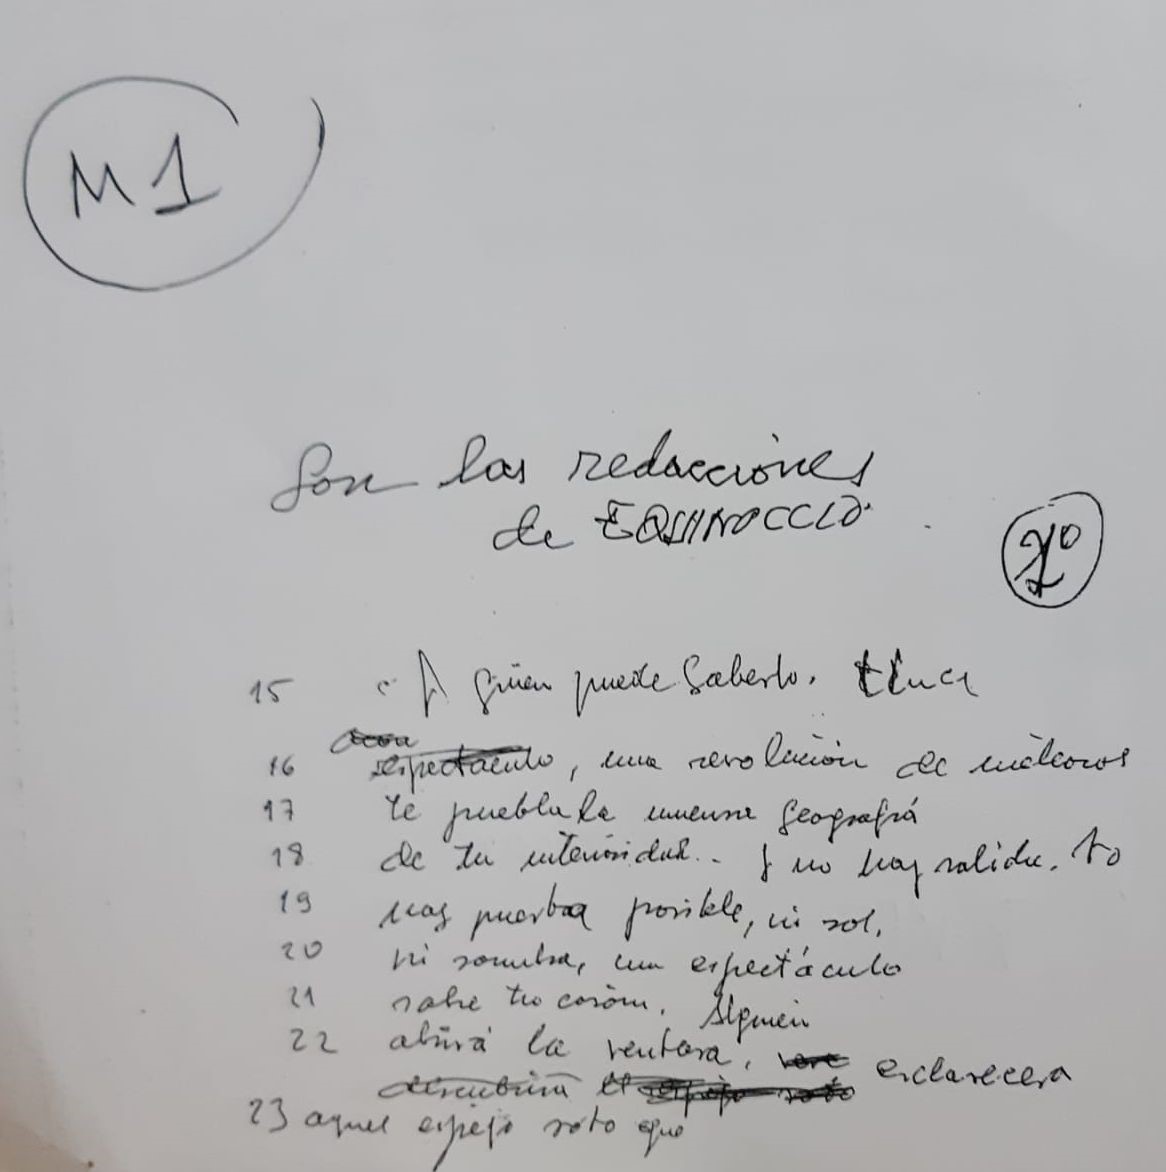 M 1
Son las redacciones
de EQUINOCCIO.
1º
15 quien puede saberlo.
16 espectaculo, una revolución de meteoros
17 te puebla la inmensa geografiá
18 de tu interioridad.. y no hay salida. No
19 hay puerta posible, ni sol,
20 ni sombra, un espectáculo
21 sobre tu corazón. Alguien
22 abrirá la ventana, esclarecera
descubrirá el espejo roto
23 aquel espejo roto que